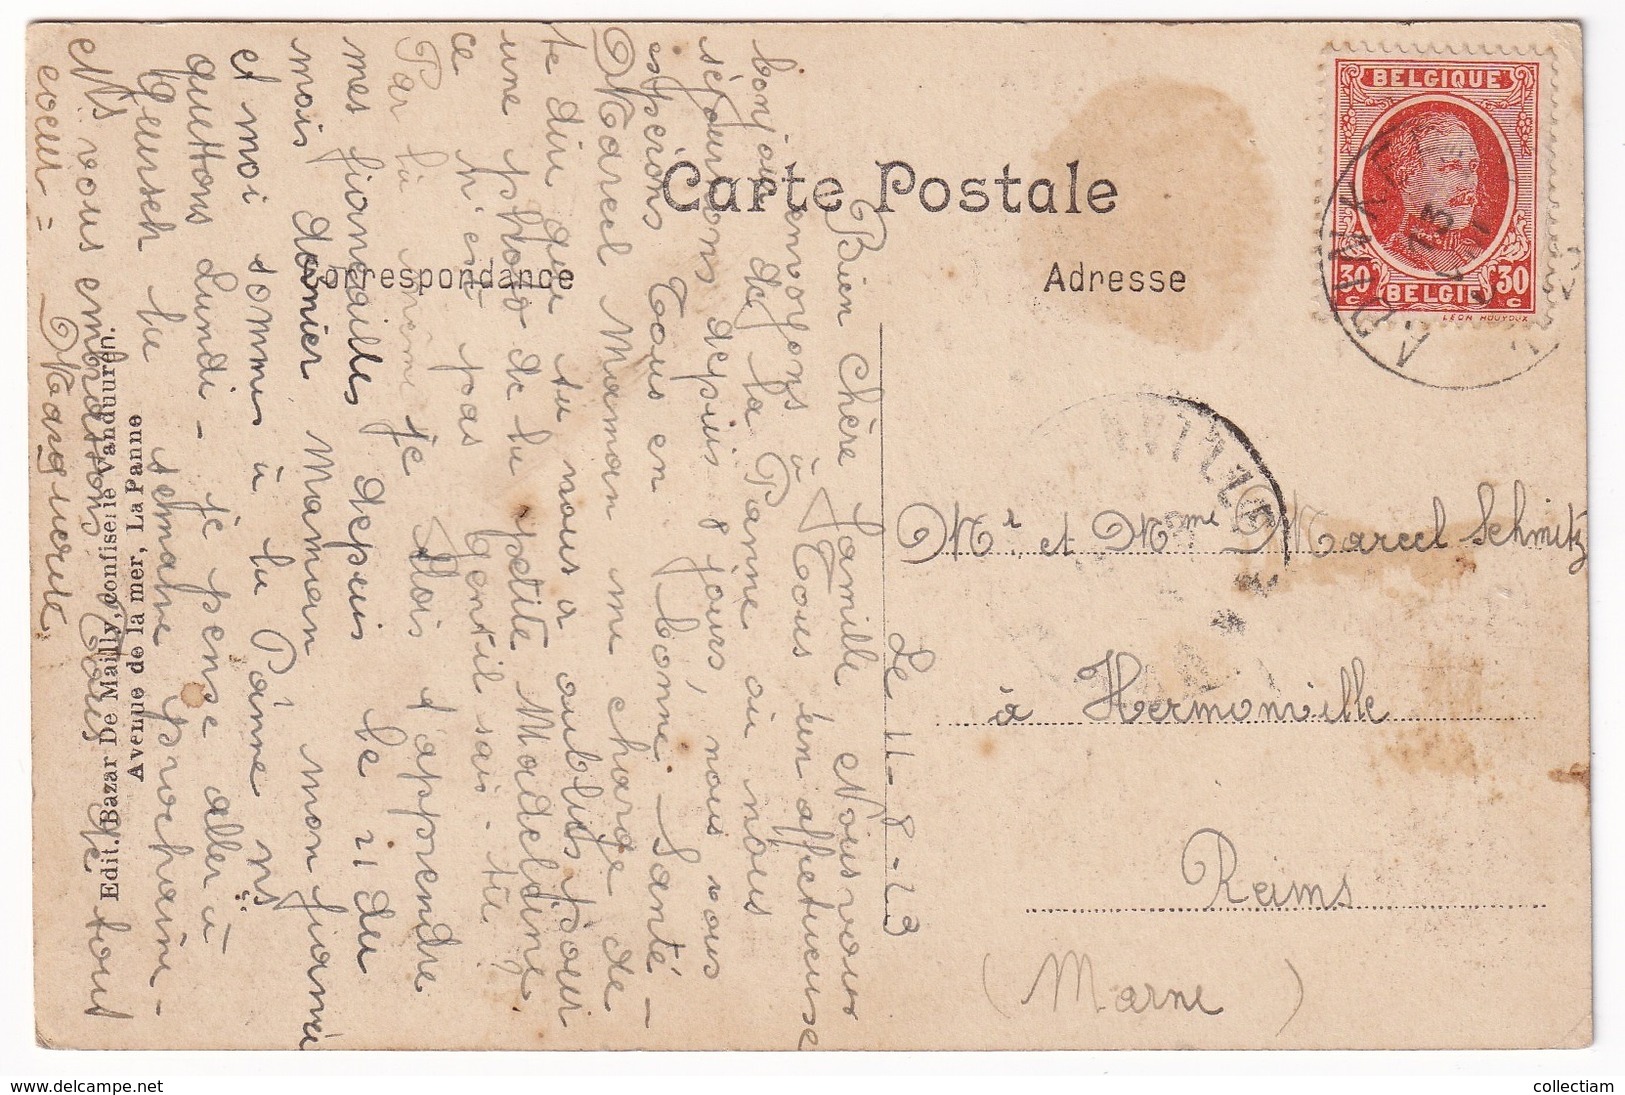 Carte Postale
Correspondance
Adresse
BELGIQUE
30 30
c BELGIE c
LEON HOUYOUX
13
Le 11-8-23
Bien chère famille Nous vous
envoyons à Tous un affectueuse
bonjour de La Panne où nous
séjournons depuis 8 jours, nous vous
espérons Tous en bonne Santé -
Marcel Maman me charge de
te dire que tu nous a oublies pour
une photo de la petite Madeleine,
ce n'est pas gentil sais-tu
Par la même je dois t'apprendre
mes fiançailles depuis le 21 du
mois dernier Maman mon fiancé
et moi sommes à la Panne ns
quittons Lundi - je pense aller à
la semaine prochaine -
Ns vous embrassons Tous de tout
coeur = Marguerite.
Edit. Bazar De Mailly, confiserie Vanduuren.
Avenue de la mer, La Panne
Mr et Mme Marcel Schmitz
à Hermonville
Reims
(Marne)
www.delcampe.net
collectiam